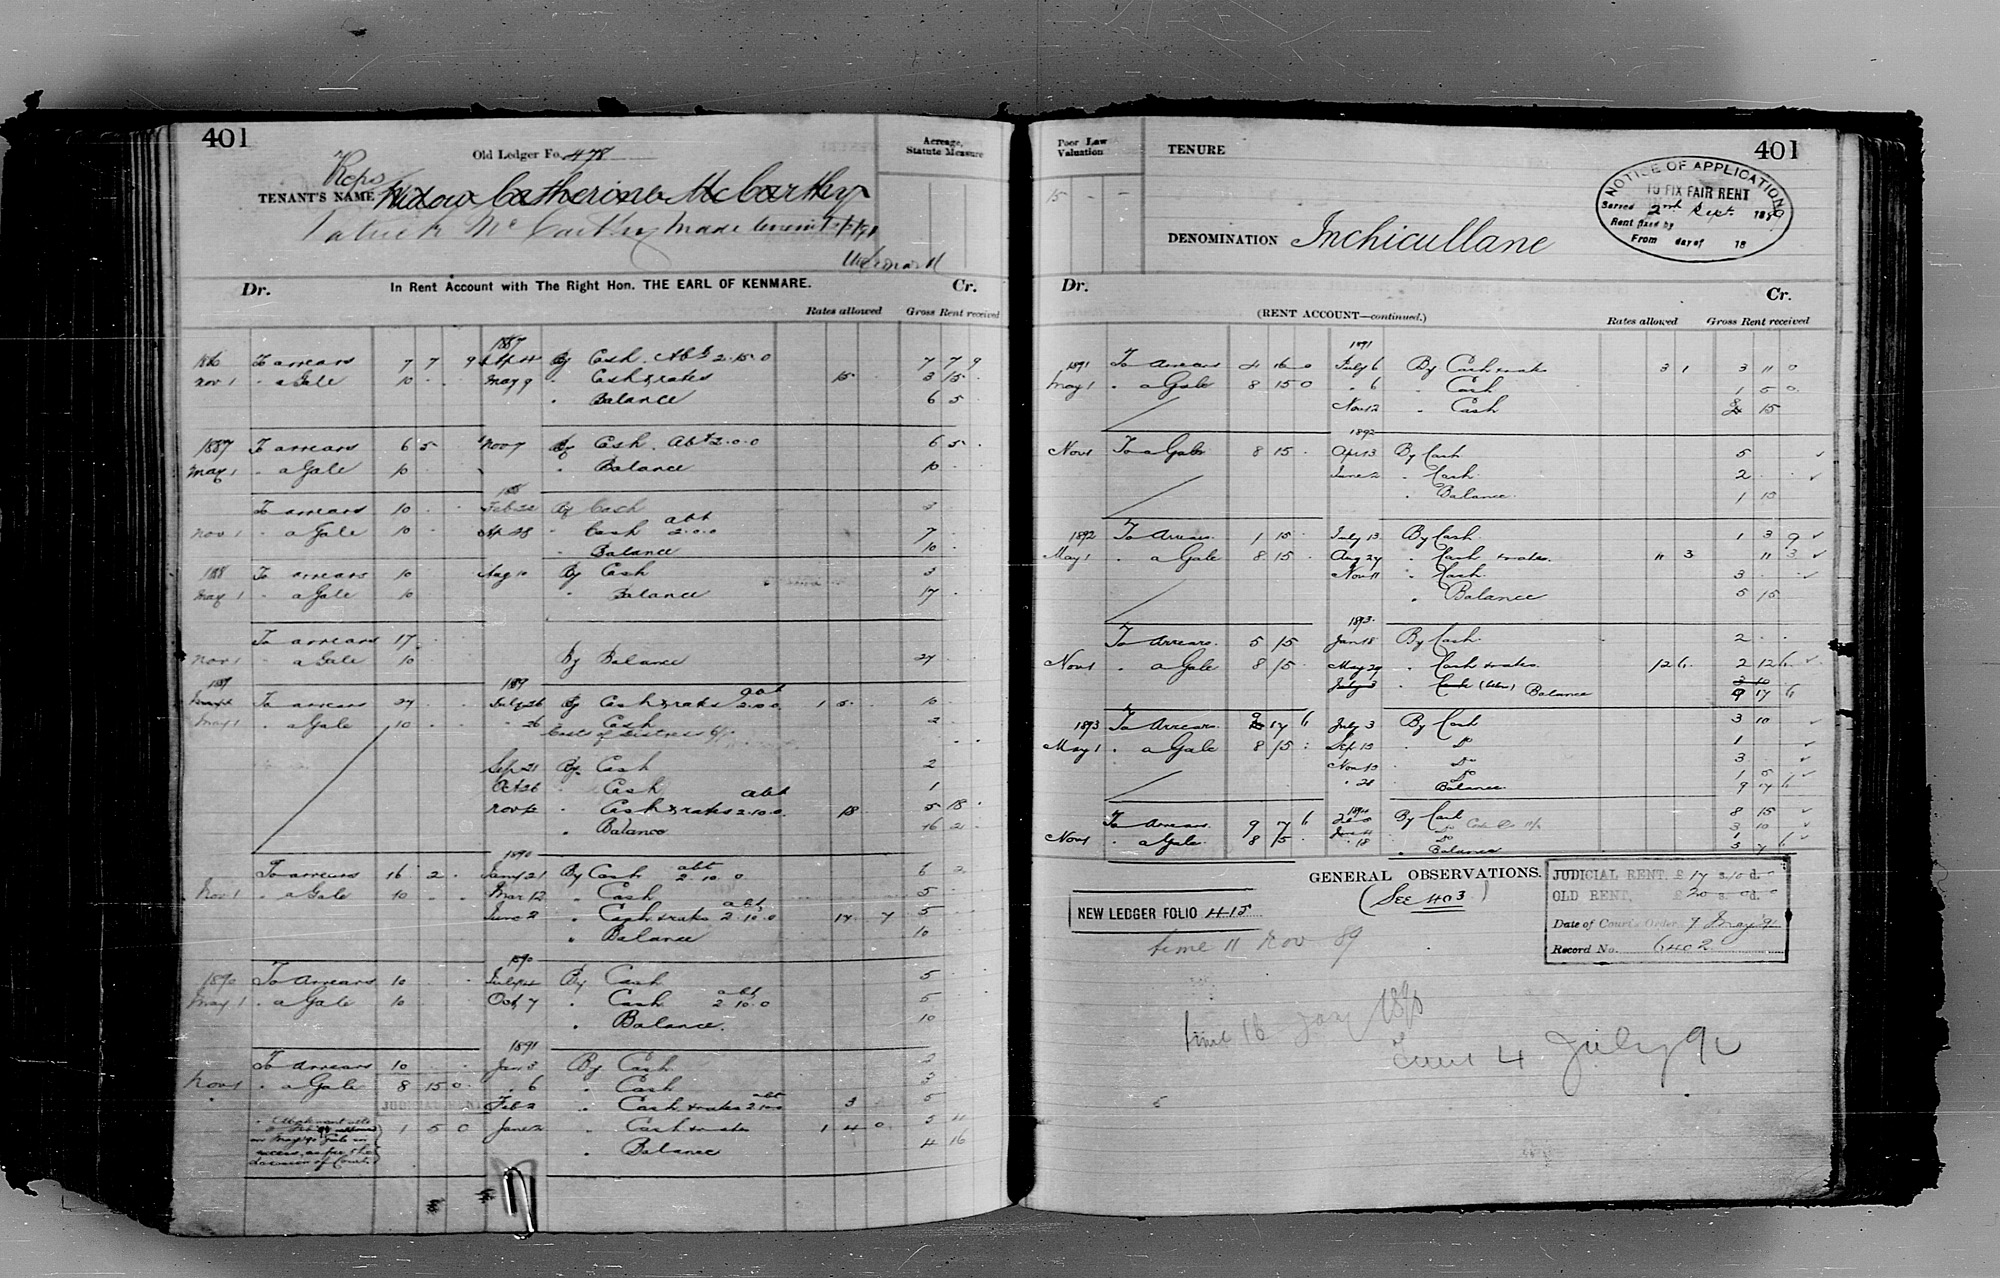 401
Old Ledger Fo. 478
Acreage, Statute Measure
Reps
TENANT'S NAME Widow Catherine McCarthy
Patrick McCarthy made tenant
Dr. In Rent Account with The Right Hon. THE EARL OF KENMARE. Cr.
Rates allowed Gross Rent received
1887
1886 To arrears 7 7 9 By Cash Abt 2.15.0 7 7 9
Nov 1 " a Gale 10 . . May 9 " Cash & rates 15 . 3 15 .
" Balance 6 5 .
1887 To arrears 6 5 . Nov 7 By Cash. Abt 2.0.0 6 5 .
May 1 " a Gale 10 . . " Balance 10 .
188
To arrears 10 . . Feb 22 By Cash 3
Nov 1 " a Gale 10 . . Ap 28 " Cash abt 2.0.0 7 .
" Balance 10 .
188 To arrears 10 . . Aug 10 By Cash 3
May 1 " a Gale 10 . " Balance 17 .
To arrears 17 . .
Nov 1 " a Gale 10 . . By Balance 27 . .
189
To arrears 27 . . July 26 By Cash & rates abt 2.0.0 1 5 . 10 .
May 1 " a Gale 10 . . " 26 " Cash 2 .
Costs of Distress
Sep 21 By Cash 2
Oct 26 " Cash 1
Nov 12 " Cash & rates abt 2.10.0 18 . 5 18 .
" Balance 16 2 .
1890
To arrears 16 2 . Jany 21 By Cash abt 2.10.0 6 2
Nov 1 " a Gale 10 . . Mar 12 " Cash 5 .
June 2 " Cash & rates abt 2.10.0 17 7 5 .
" Balance 10 .
1890
1890 To Arrears 10 . . July 4 By Cash 5
May 1 " a Gale 10 . . Oct 7 " Cash abt 2.10.0 5
" Balance. 10
1891
To arrears 10 . . Jan 3 By Cash 2
Nov 1 " a Gale 8 15 0 " 6 " Cash 3
JUDICIAL RENT
Feb 2 " Cash & rates abt 3 . 5
1 5 0 June 2 " Cash & rates 1 4 0 5 4
on May 90 Gale in
excess, as per the
decision of Court
" Balance 4 16
Poor Law Valuation
15
TENURE
401
NOTICE OF APPLICATION
TO FIX FAIR RENT
Served 2nd Sept. 1889
Rent fixed by
From day of 18
DENOMINATION Inchicullane
Dr. (RENT ACCOUNT—continued.) Cr.
Rates allowed Gross Rent received
1891
1891 To Arrears 4 16 0 July 6 By Cash & rates 3 1 3 11 0
May 1 " a Gale 8 15 0 " 6 " Cash 1 5 0
Nov 12 " Cash 8 15
1892
Nov 1 To a Gale 8 15 . Apr 13 By Cash 5
June 2 " Cash 2 . .
" Balance. 1 15
1892 To Arrears 1 15 . July 13 By Cash. 1 3 9
May 1 " a Gale 8 15 Aug 27 " Cash & rates. 11 3 11 3
Nov 11 " Cash. 3 . .
" Balance 5 15
1893
To Arrears. 5 15 Jan 18 By Cash. 2 . .
Nov 1 " a Gale 8 15 . May 29 " Cash & rates. 12 6 2 12 6
July 3 " Cash Balance 3 10
9 17 6
1893 To Arrears. 9 17 6 July 3 By Cash 3 10
May 1 " a Gale 8 15 : Sep 13 " Do 1
Nov 13 " Do 3 .
" 28 " Do 1 5
Balance. 9 17 6
To Arrears. 9 7 6 By Cash 8 15
Nov 1 " a Gale. 8 15 " Do 3 10
" 18 " Do 1
" Balance 3 7 6
GENERAL OBSERVATIONS.
(See 403)
NEW LEDGER FOLIO 415
JUDICIAL RENT, £ 17 s. 10 d.
OLD RENT, £ 20 s. 0 d.
Date of Court's Order, 7 May 9
Record No. 6402
time 11 Nov 89
time 16 Jany 1890
Time 4 July 90